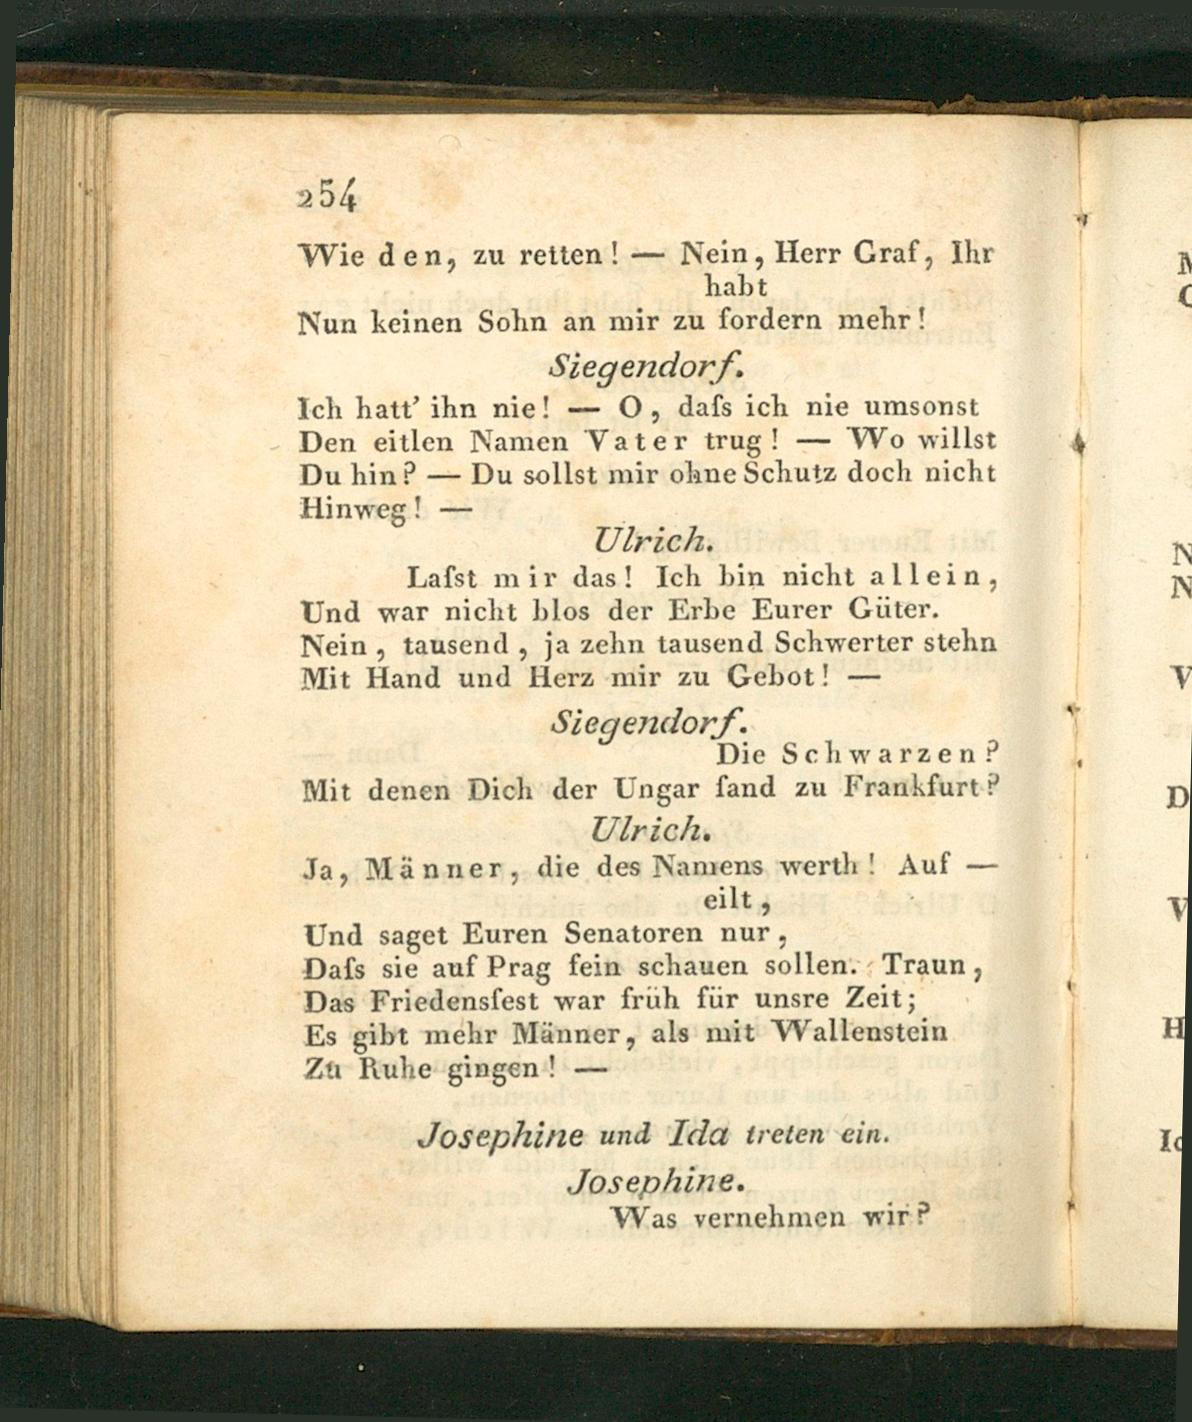 254
Wie den, zu retten! — Nein, Herr Graf, Ihr
habt
Nun keinen Sohn an mir zu fordern mehr!
Siegendorf.
Ich hatt' ihn nie! — O, daſs ich nie umsonst
Den eitlen Namen Vater trug! — Wo willst
Du hin? — Du sollst mir ohne Schutz doch nicht
Hinweg! —
Ulrich.
Laſst mir das! Ich bin nicht allein,
Und war nicht blos der Erbe Eurer Güter.
Nein, tausend, ja zehn tausend Schwerter stehn
Mit Hand und Herz mir zu Gebot! —
Siegendorf.
Die Schwarzen?
Mit denen Dich der Ungar fand zu Frankfurt?
Ulrich.
Ja, Männer, die des Namens werth! Auf —
eilt,
Und saget Euren Senatoren nur,
Daſs sie auf Prag fein schauen sollen. Traun,
Das Friedensfest war früh für unsre Zeit;
Es gibt mehr Männer, als mit Wallenstein
Zu Ruhe gingen! —
Josephine und Ida treten ein.
Josephine.
Was vernehmen wir?